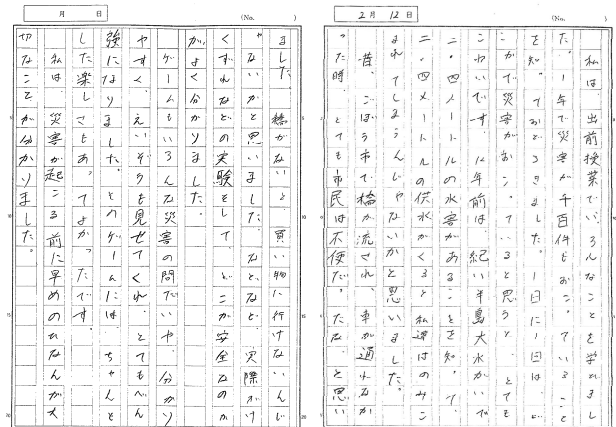 2月 12日
(No. )
私は、出前授業でいろんなことを学びまし
た。1年で災害が千百件もおこっている
を知っておどろきました。1日に1回はど
こかで災害がおこっていると思うと、とても
こわいです。12年前は、紀い半島大水がいで
二・四メートルの水害があることを知って、
二・四メートルの供水がくると、私達はのみこ
まれてしまうんじゃないかと思いました。
昔、ごぼう市で橋が流され、車が通れなか
った時、とても市民は不便だったな、と思い
月 日
(No. )
ました。橋がないと、買い物に行けないんじ
ゃないかと思いました。
くずれないかの実験をして、どこが安全なのか
がよく分かりました。
ゲームもいろんな災害の問だいや、分かり
やすく、えいぞうも見せてくれ、とてもべん
強になりました。そのゲームには、ちゃんと
した楽しさもあってよかったです。
私は、災害が起こる前に早めのひなんが大
切なことが分かりました。